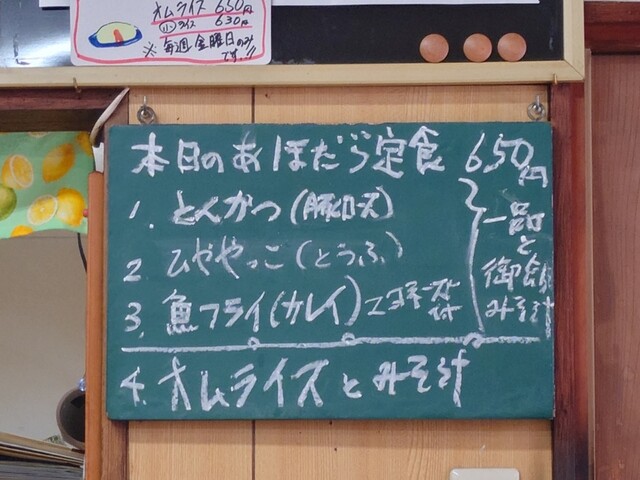 オムライス 650円
小ライス 630円
※毎週金曜日のみ
です!!
本日のあほだら定食 650円
1. とんかつ(豚ロース)
2 ひややっこ(とうふ)
3. 魚フライ(カレイ)
一品
と
御飯
みそ汁
4. オムライスとみそ汁